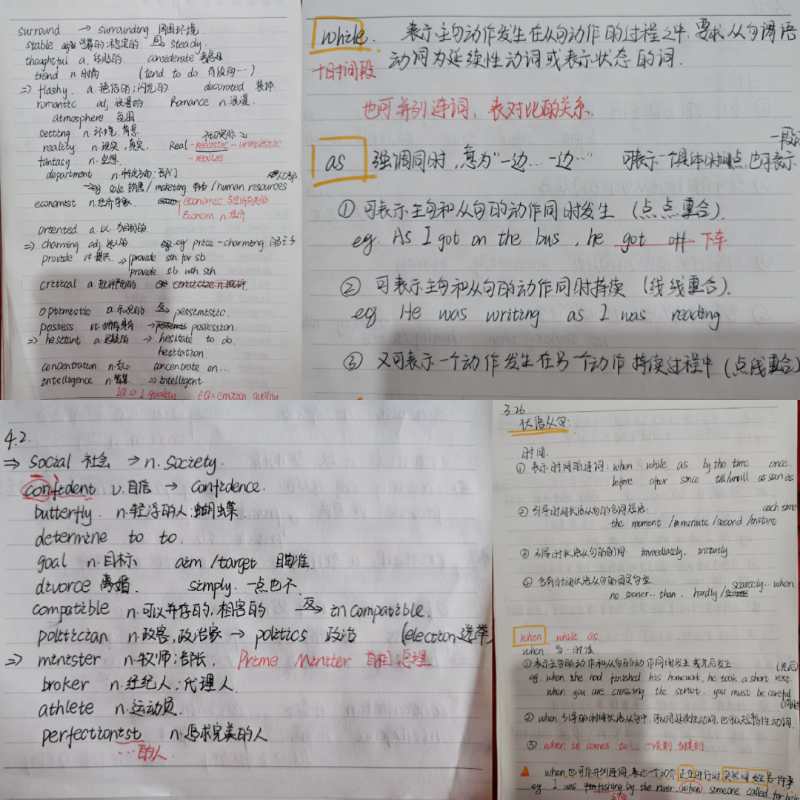 surround → surrounding 周围环境
stable 稳定的 steady
thoughtful a. 体贴的 considerate
trend n. 趋向 (tend to do
⇒ flashy. a. 艳俗的;闪光的 decorated 装饰
romantic adj. 浪漫的 Romance n. 浪漫
atmosphere 氛围
setting n. 环境,背景
reality n. 现实,真实 Real - realistic - unrealistic
fantasy n. 幻想
department n.
sale 销售 / marketing / human resources
economist n. 经济学家 economic
Economy n. 经济
oriented a. 以…为目的的
⇒ charming adj. 迷人的 eg prince-charming 白马王子
provide vt. 提供 ⇒ provide sth for sb
provide sb with sth
critical a. 批评的
optimistic a. 乐观的 反 pessimistic
possess vt. → possession
⇒ hesitant a. → hesitate to do
hesitation
concentration n. 专心 concentrate on...
intelligence n. 智慧 ⇒ intelligent
while. 表示主句动作发生在从句动作的过程之中,要求从句谓语
动词为延续性动词或表示状态的词.
+时间段
也可并列连词,表对比的关系.
as 强调同时,意为“一边…一边…” 可表示一个具体时间点,也可表示一段
① 可表示主句和从句的动作同时发生 (点点重合).
eg. As I got on the bus, he got off 下车
② 可表示主句和从句的动作同时持续 (线线重合).
eg He was writing as I was reading
③ 又可表示一个动作发生在另一个动作持续过程中 (点线重合)
4.2.
⇒ social 社会 → n. society.
confident v. 自信 → confidence.
butterfly. n. 轻浮的人;蝴蝶
determine to to.
goal n. 目标 aim / target 瞄准.
divorce 离婚. simply. 一点也不.
compatible n. 可以并存的,相容的 反 → incompatible.
politician n. 政客,政治家 → politics 政治 (election 选举
⇒ minister n. 牧师;部长. Prime Minister 首相,总理
broker n. 经纪人;代理人.
athlete n. 运动员.
perfectionist n. 追求完美的人
…的人.
3.26
状语从句:
时间.
① 表示时间的连词: when while as by the time once.
before after since till/until as soon as
② 引导时间状语从句的名词短语: each time
the moment / immediate / second / instant
③ 引导时间状语从句的副词 immediately, instantly
④ 含有时间状语从句的固定句型 scarcely... when
no sooner... than, hardly /
when while as
when 当…时候
① 表示主句的动作和从句的动作同时发生或先后发生
eg. when she had finished his homework, he took a short rest.
when you are crossing the street, you must be careful
② when 引导的时间状语从句中
③ when it comes to
when 也可作并列连词,
eg. I was fishing by the river (when) someone called for help